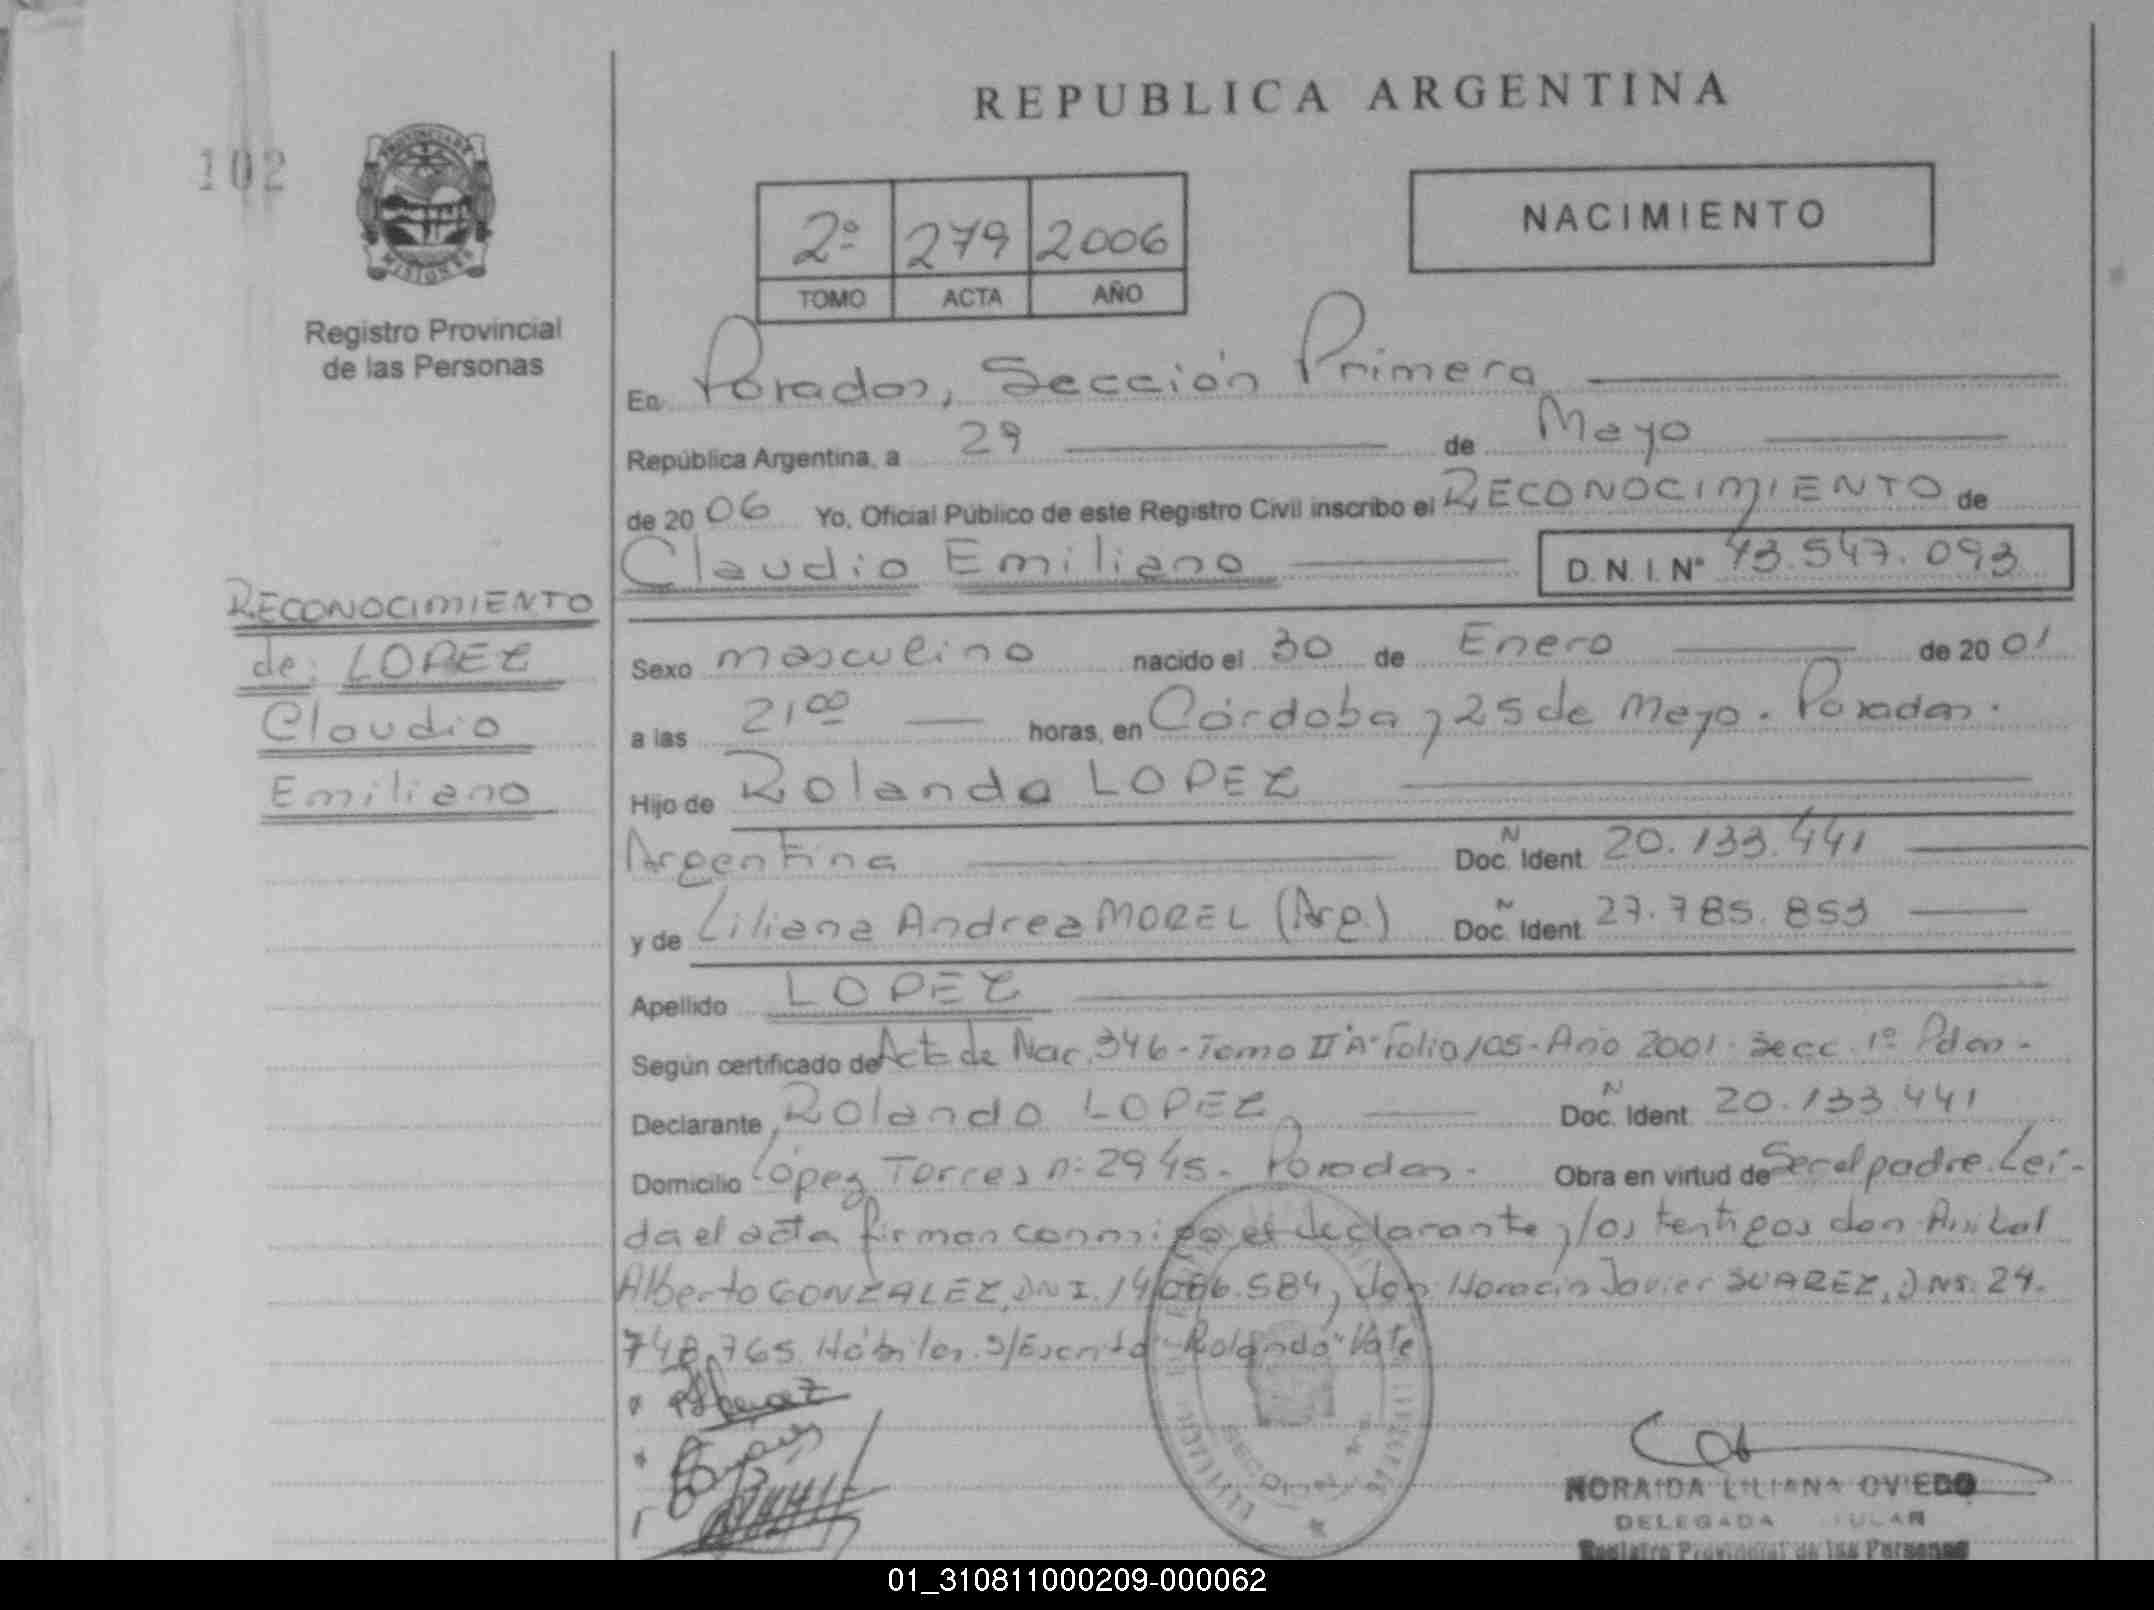 REPUBLICA ARGENTINA
102
PROVINCIA DE
MISIONES
Registro Provincial
de las Personas
2º 279 2006
TOMO ACTA AÑO
NACIMIENTO
En Posadas, Sección Primera
República Argentina, a 29 de Mayo
de 20 06 Yo, Oficial Público de este Registro Civil inscribo el RECONOCIMIENTO de
Claudio Emiliano D.N.I. Nº 43.547.093
RECONOCIMIENTO
de: LOPEZ
Claudio
Emiliano
Sexo masculino nacido el 30 de Enero de 20 01
a las 21 00 horas, en Córdoba y 25 de Mayo. Posadas.
Hijo de Rolando LOPEZ
Argentina Doc. N Ident. 20.133.441
y de Liliana Andrea MOREL (Arg.) Doc. N Ident. 27.785.853
Apellido LOPEZ
Según certificado de Acta de Nac. 346 - Tomo II "A" Folio 105 - Año 2001 - Secc. 1º Pdas -
Declarante Rolando LOPEZ Doc. N Ident. 20.133.441
Domicilio López Torres nº 2945 - Posadas. Obra en virtud de Ser el padre. Leí-
da el acta firman conmigo el declarante y los testigos don Anibal
Alberto GONZALEZ, DNI. 14.086.584, don Horacio Javier SUAREZ, DNI. 24.
748.765. Hábiles. S/Escrito "Rolando" Vale
SECCIONAL
NORAIDA LILIANA OVIEDO
DELEGADA TITULAR
Registro Provincial de las Personas
01_310811000209-000062